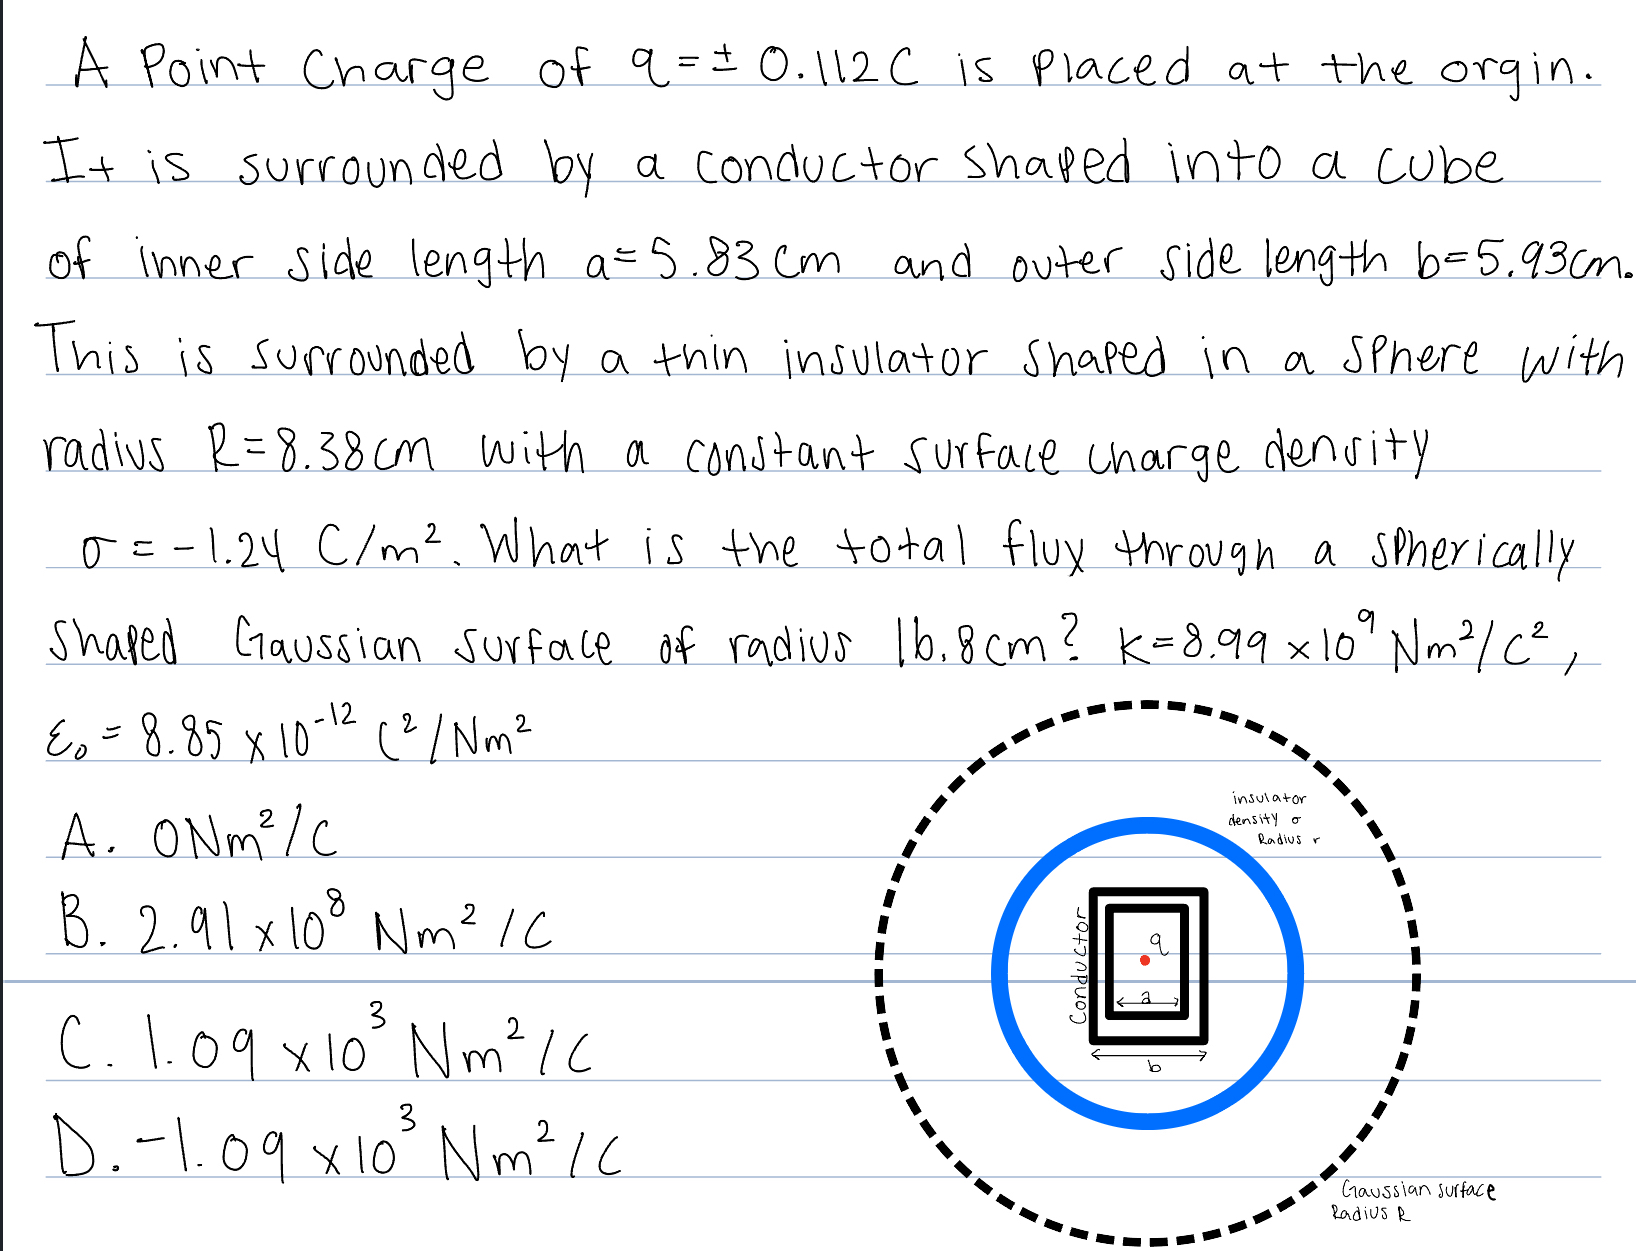 A Point Charge of q = ± 0.112C is placed at the orgin.
It is surrounded by a conductor shaped into a cube
of inner side length a=5.83 cm and outer side length b=5.93cm.
This is surrounded by a thin insulator shaped in a sphere with
radius R=8.38cm with a constant surface charge density
σ = -1.24 C/m². What is the total flux through a spherically
shaped Gaussian surface of radius 16.8cm? K=8.99 x10⁹ Nm²/C²,
ε₀ = 8.85 x 10⁻¹² C²/Nm²
A. ONm²/C
B. 2.91x10⁸ Nm²/C
C. 1.09 x10³ Nm²/C
D. -1.09 x10³ Nm²/C
insulator
density σ
Radius r
Conductor
q
a
b
Gaussian surface
Radius R